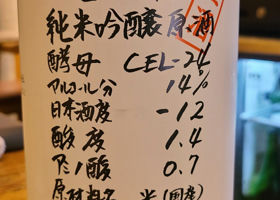 純米吟醸原酒
酵母 CEL-24
アルコール分 14%
日本酒度 -12
酸度 1.4
アミノ酸 0.7
原材料名 米(国産)